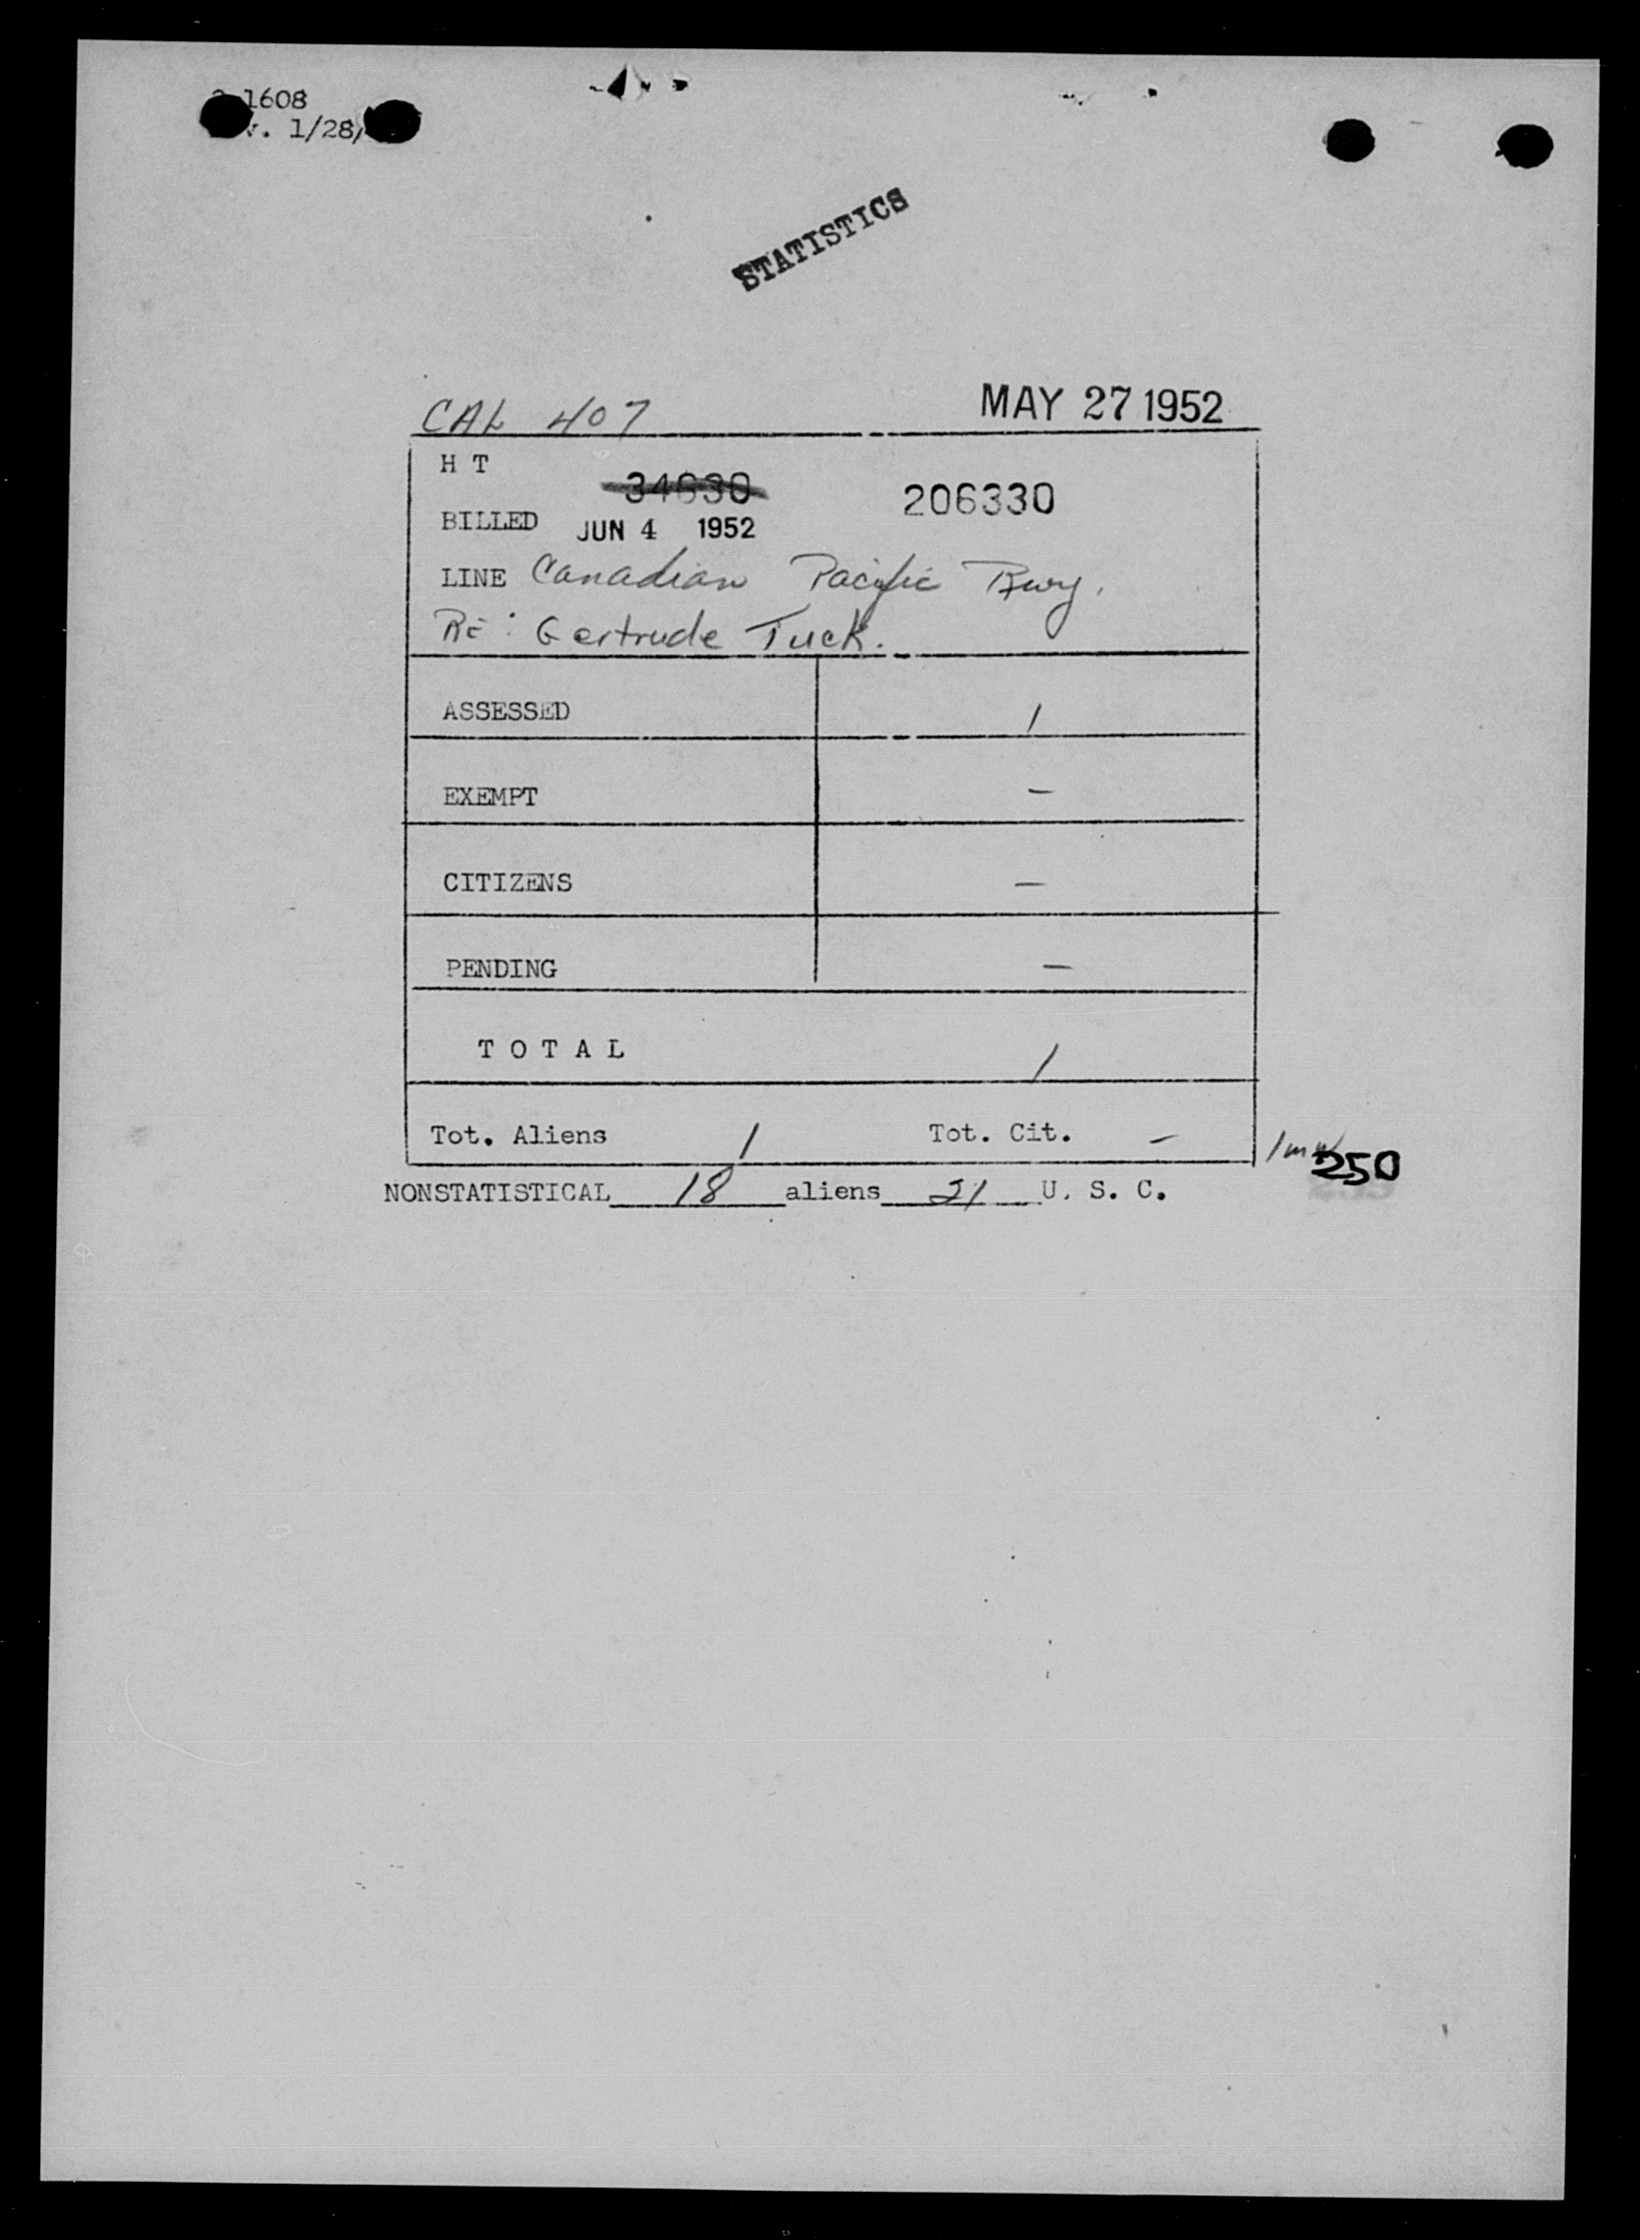 1608
v. 1/28/
STATISTICS
CAL 407 MAY 27 1952
H T
34630 206330
BILLED JUN 4 1952
LINE Canadian Pacific Rwy.
Re: Gertrude Tuck.
ASSESSED 1
EXEMPT –
CITIZENS –
PENDING –
T O T A L 1
Tot. Aliens 1 Tot. Cit. –
250
NONSTATISTICAL 18 aliens 21 U. S. C.